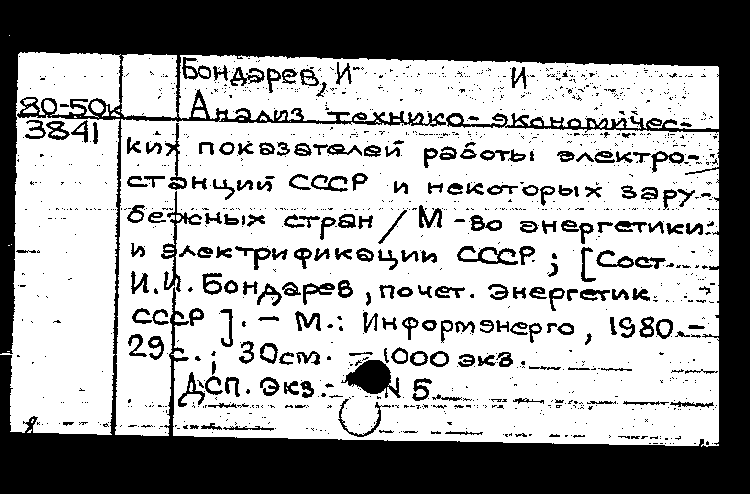 Бондарев, И И
80-50к Анализ технико-экономичес-
3841
ких показателей работы электро-
станций СССР и некоторых зару-
бежных стран / М-во энергетики
и электрификации СССР ; [Сост.
И.И. Бондарев, почет. энергетик
СССР ]. - М.: Информэнерго, 1980.-
29с. ; 30см. - 1000 экз.
ДСП. Экз. N 5.